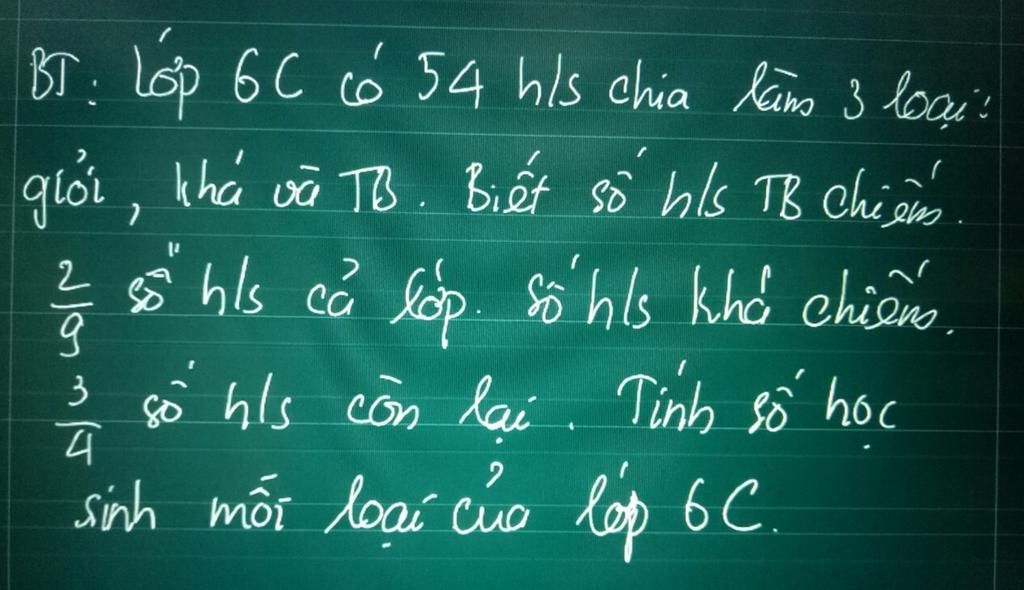 BT: Lớp 6C có 54 h/s chia làm 3 loại:
giỏi, khá và TB. Biết số h/s TB chiếm.
2/9 số h/s cả lớp. Số h/s khá chiếm.
3/4 số h/s còn lại. Tính số học
sinh mỗi loại của lớp 6C.